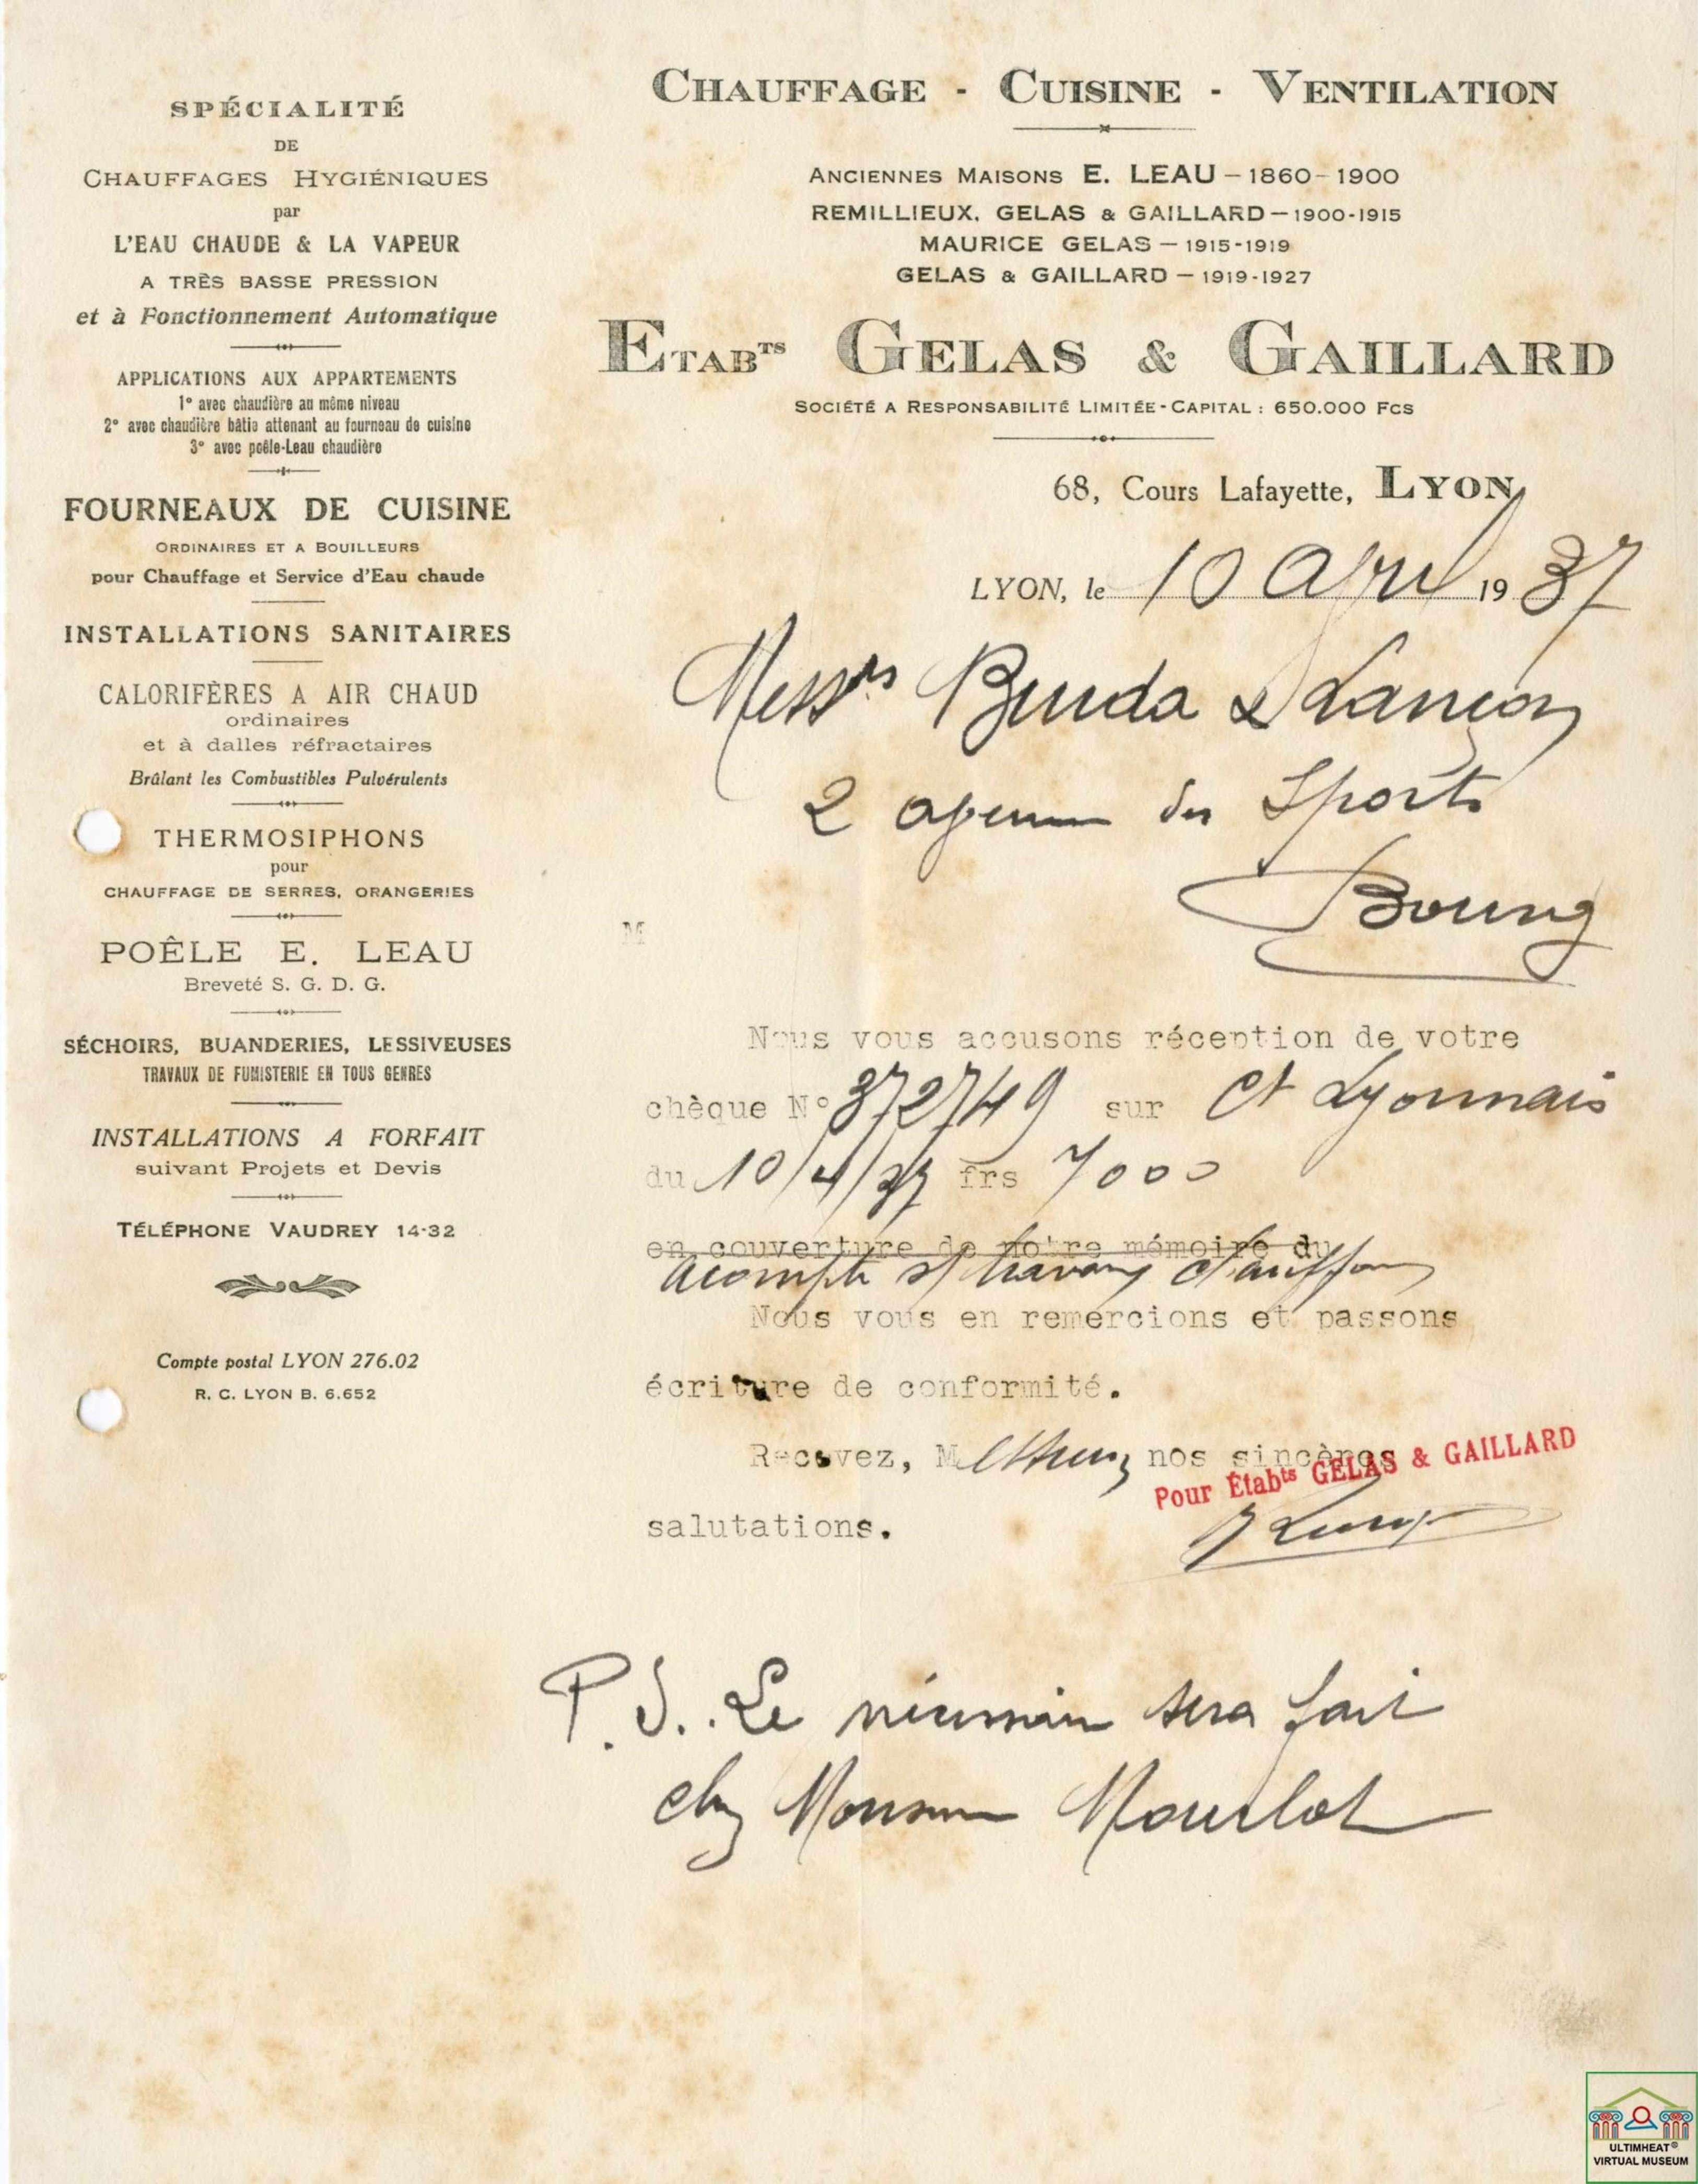 SPÉCIALITÉ
DE
CHAUFFAGES HYGIÉNIQUES
par
L'EAU CHAUDE & LA VAPEUR
A TRÈS BASSE PRESSION
et à Fonctionnement Automatique
APPLICATIONS AUX APPARTEMENTS
1° avec chaudière au même niveau
2° avec chaudière bâtie attenant au fourneau de cuisine
3° avec poêle-Leau chaudière
FOURNEAUX DE CUISINE
ORDINAIRES ET A BOUILLEURS
pour Chauffage et Service d'Eau chaude
INSTALLATIONS SANITAIRES
CALORIFÈRES A AIR CHAUD
ordinaires
et à dalles réfractaires
Brûlant les Combustibles Pulvérulents
THERMOSIPHONS
pour
CHAUFFAGE DE SERRES, ORANGERIES
POÊLE E. LEAU
Breveté S. G. D. G.
SÉCHOIRS, BUANDERIES, LESSIVEUSES
TRAVAUX DE FUMISTERIE EN TOUS GENRES
INSTALLATIONS A FORFAIT
suivant Projets et Devis
TÉLÉPHONE VAUDREY 14-32
Compte postal LYON 276.02
R. C. LYON B. 6.652
CHAUFFAGE - CUISINE - VENTILATION
ANCIENNES MAISONS E. LEAU – 1860-1900
REMILLIEUX, GELAS & GAILLARD – 1900-1915
MAURICE GELAS – 1915-1919
GELAS & GAILLARD – 1919-1927
ETABTS GELAS & GAILLARD
SOCIÉTÉ A RESPONSABILITÉ LIMITÉE - CAPITAL : 650.000 FCS
68, Cours Lafayette, LYON
LYON, le 10 Avril 1937
Messrs & Lançon
2 des Sports
Bourg
M
Nous vous accusons réception de votre
chèque N° 372749 sur Ct Lyonnais
du 10/4/37 frs 7000
en couverture de notre mémoire du
Acompte s/ travaux chauffage
Nous vous en remercions et passons
écriture de conformité.
Recevez, Messieurs nos sincères
Pour Étabts GELAS & GAILLARD
salutations.
P.S. Le nécessaire sera fait
chez Monsieur Mourlot
ULTIMHEAT®
VIRTUAL MUSEUM